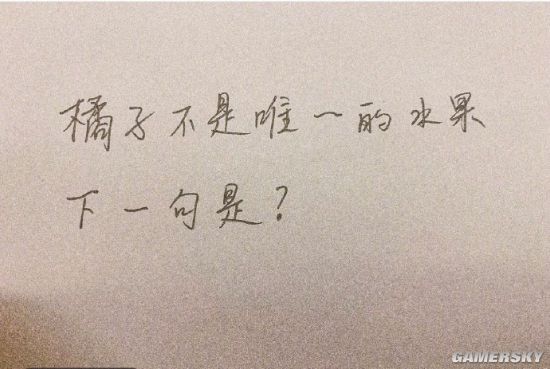 橘子不是唯一的水果
下一句是?
GAMERSKY